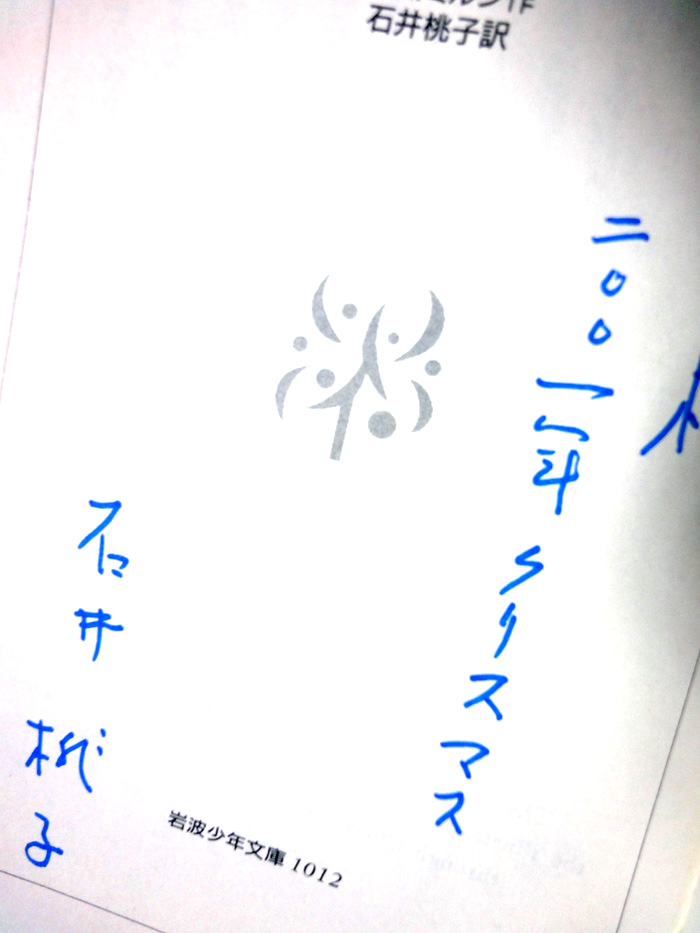 石井桃子訳
二〇〇一年 クリスマス
石井 桃子
岩波少年文庫 1012